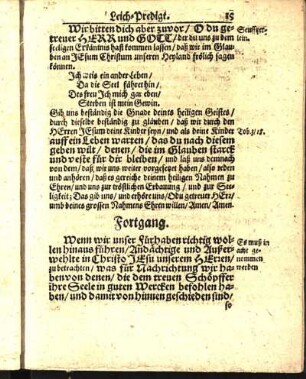 Leich-Predigt. 15
Wir bitten dich aber zuvor/ O du ge-
treuer HERR und GOTT/ der du uns zu dem
seeligen Erkäntnis hast kommen lassen/ daß wir im Glau-
ben an JEsum Christum unsern Heyland frölich sagen
können.
Ich weis ein ander Leben/
Da die Seel fährt hin/
Des freu Ich mich gar eben/
Sterben ist mein Gewin.
Gib uns beständig die Gnade deines heiligen Geistes/
durch dieselbe beständig zu gläuben/ daß wir durch den
HErren JEsum deine Kinder seyn/ und als deine Kinder
auff ein Leben warten/ das du nach diesem Tob. 2/ 18.
geben wilt/ denen/ die im Glauben starck
und veste für dir bleiben/ und laß uns demnach
von dem/ daß wir anitz weiter vorgesetzet haben/ also reden
und anhören/ daß es gereiche deinem heiligen Nahmen zu
Ehren/ und uns zur tröstlichen Erbauung/ und zur See-
ligkeit; Das gib uns/ und erhöre uns/ O du getreuer HErr/
umb deines grossen Nahmens Ehren willen/ Amen/ Amen.
Fortgang.
Wenn wir unser Fürhaben richtig wol- Es muß in
len hinaus führen/ Andächtige und Außer- acht ge-
wehlte in Christo JEsu unserem HErren/ nommen
zu betrachten/ was für Nachrichtung wir ha- werden
ben von denen/ die dem treuen Schöpffer
ihre Seele in guten Wercken befohlen ha-
ben/ und damit von hinnen geschieden sind/
so